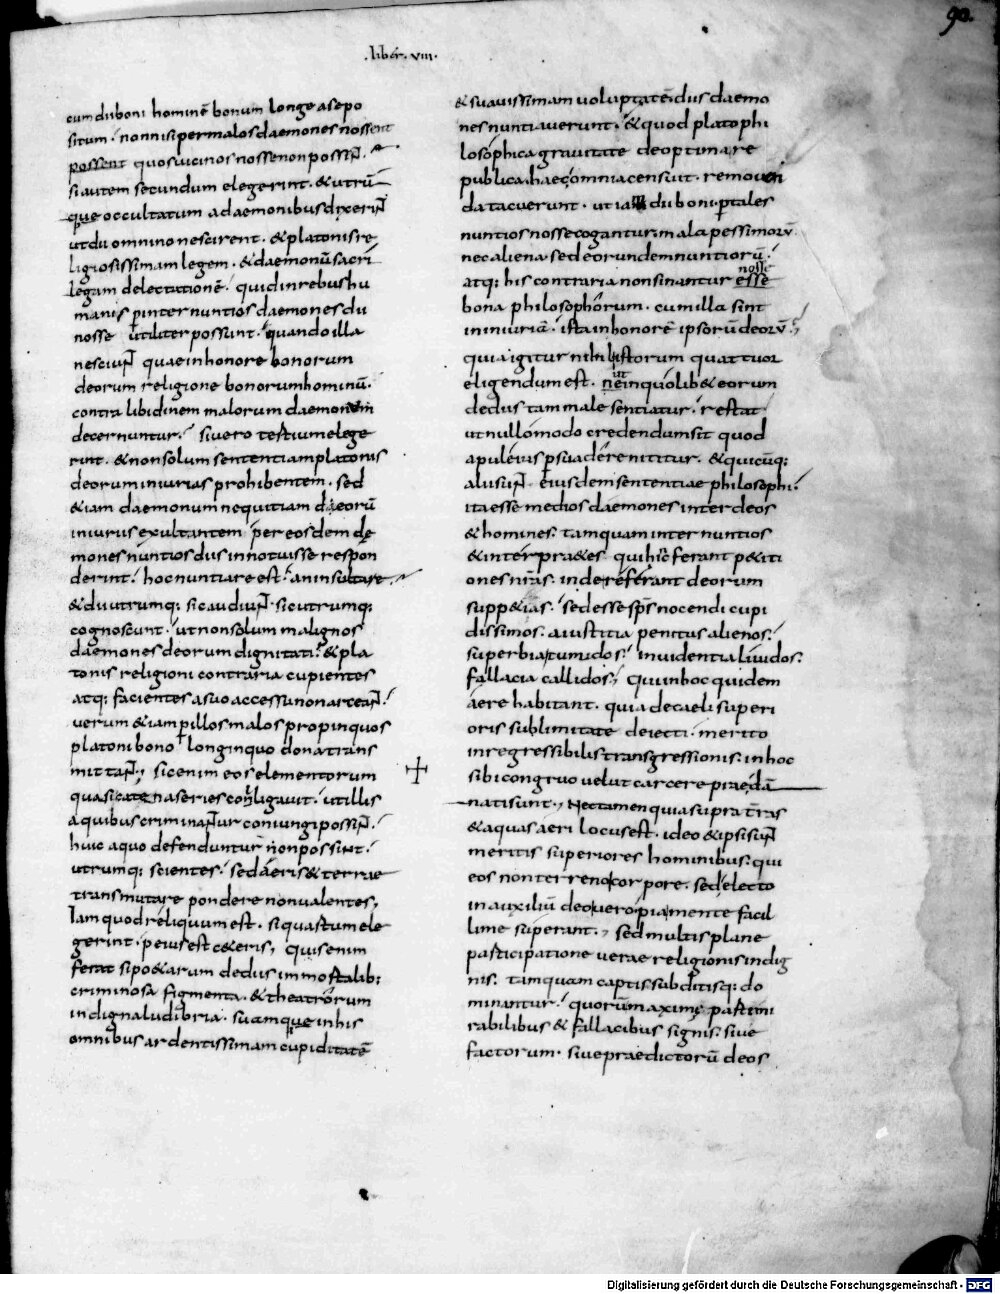 90.
.liber. viii.
cum dii boni hominē bonum longe a sepo
situm. non nisi per malos daemones nossent
possent quos uicinos nosse non possint.
si autem secundum elegerint. & utrū
que occultatum a daemonibus dixerint
ut dii omnino nescirent. & platonis re
ligiosissimam legem. & daemonū sacri
legam delectationē. quid in rebus hu
manis p internuntios daemones dii
nosse utiliter possunt. quando illa
nesciunt quae in honore bonorum
deorum religione bonorum hominū.
contra libidinem malorum daemonum
decernuntur. si uero tertium elege
rint. & non solum sententiam platonis
deorum iniurias prohibentem. sed
& iam daemonum nequitiam deorū
iniuriis exultantem per eosdem de
mones nuntios diis innotuisse respon
derint. hoc nuntiare est. an insultare
& dii utrumq: sic audiunt. sic utrumq:
cognoscunt. ut non solum malignos
daemones deorum dignitati. & pla
tonis religioni contraria cupientes
atq: facientes a suo accessu non arceant.
uerum & iam p illos malos propinquos
platoni bono longinquo dona trans
mittant. sic enim eos elementorum
quasi catenas series conligauit. ut illis
a quibus criminantur coniungi possint.
huic a quo defenduntur non possint.
utrumq: scientes. sed aeris & terrae
transmutare pondere non ualentes,
Iam quod reliquum est. si quartum ele
gerint. peius est c&eris, quis enim
ferat si po&arum de diis immortalib:
criminosa figmenta. & theatrorum
indigna ludibria. suamque in his
omnibus ardentissimam cupiditatē
& suauissimam uoluptatē. diis daemo
nes nuntiauerunt. & quod plato phi
losophica grauitate de optima re
publica. haec omnia censuit. remouen
da tacuerunt. ut iam dii boni. p tales
nuntios nosse cogantur. mala pessimorū.
nec aliena. sed eorundem nuntiorū.
atq: his contraria non sinantur esse
nosse
bona philosophorum. cum illa sint
in iniuriā. ista in honorē ipsorū deorū.
quia igitur nihil istorum quattuor
eligendum est. ne in quolib& eorum
ut
de diis tam male sentiatur. restat
ut nullo modo credendum sit quod
apuleius psuadere nititur. & quicūq:
alii sunt eiusdem sententiae philosophi.
ita esse medios daemones inter deos
& homines. tamquam internuntios
& interpr&es. qui hic ferant p&iti
ones nr̄as. inde referant deorum
supp&ias. sed esse sps̄ nocendi cupi
dissimos. a iustitia penitus alienos.
superbia tumidos. inuidentia liuidos.
fallacia callidos. qui in hoc quidem
aere habitant. quia de caeli superi
oris sublimitate deiecti. merito
inregressibilis transgressionis. in hoc
sibi congruo uelut carcere praedā
nati sunt, Nec tamen quia supra tr̄as
& aquas aeri locus est. ideo & ipsi sunt
meritis superiores hominibus. qui
eos non terreno corpore. sed electo
in auxiliū deo uero pia mente facil
lime superant, sed multis plane
participatione uerae religionis indig
nis. tamquam captis subditisq: do
minantur. quorū maxime partim
rabilibus & fallacibus signis. siue
factorum. siue praedictorū deos
Digitalisierung gefördert durch die Deutsche Forschungsgemeinschaft - DFG